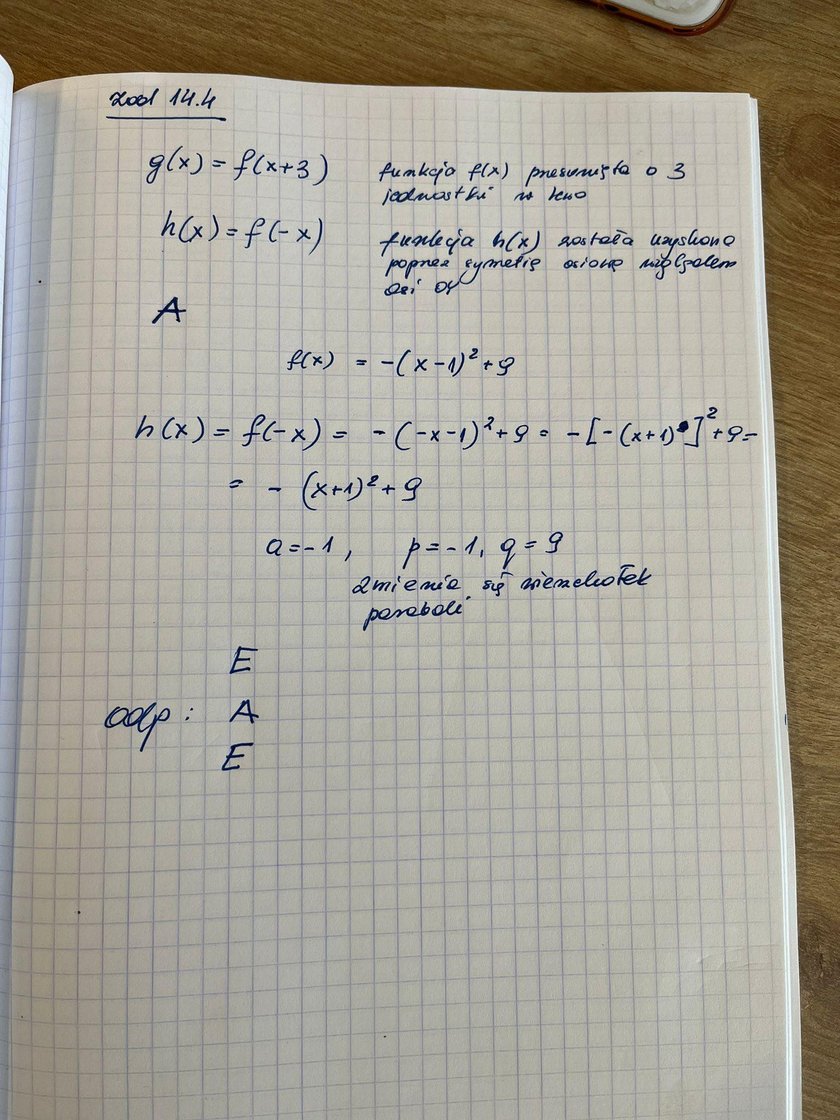 zad 14.4
g(x) = f(x+3) funkcja f(x) przesunięta o 3
jednostki w lewo
h(x) = f(-x) funkcja h(x) została uzyskana
poprzez symetię osiową względem
osi oy
A
f(x) = -(x-1)² + 9
h(x) = f(-x) = -(-x-1)² + 9 = -[-(x+1)]² + 9 =
= -(x+1)² + 9
a = -1, p = -1, q = 9
zmienia się wierzchołek
paraboli
E
odp: A
E